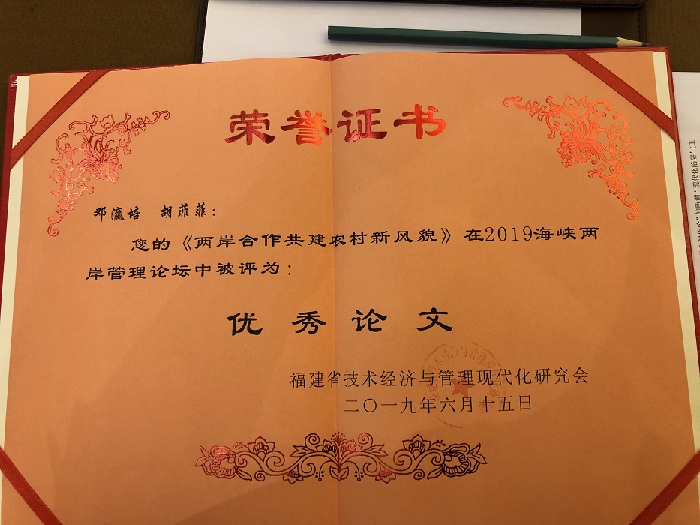 荣誉证书
邓瀛培 胡菲菲：
您的《两岸合作共建农村新风貌》在2019海峡两
岸管理论坛中被评为：
优秀论文
福建省技术经济与管理现代化研究会
二〇一九年六月十五日